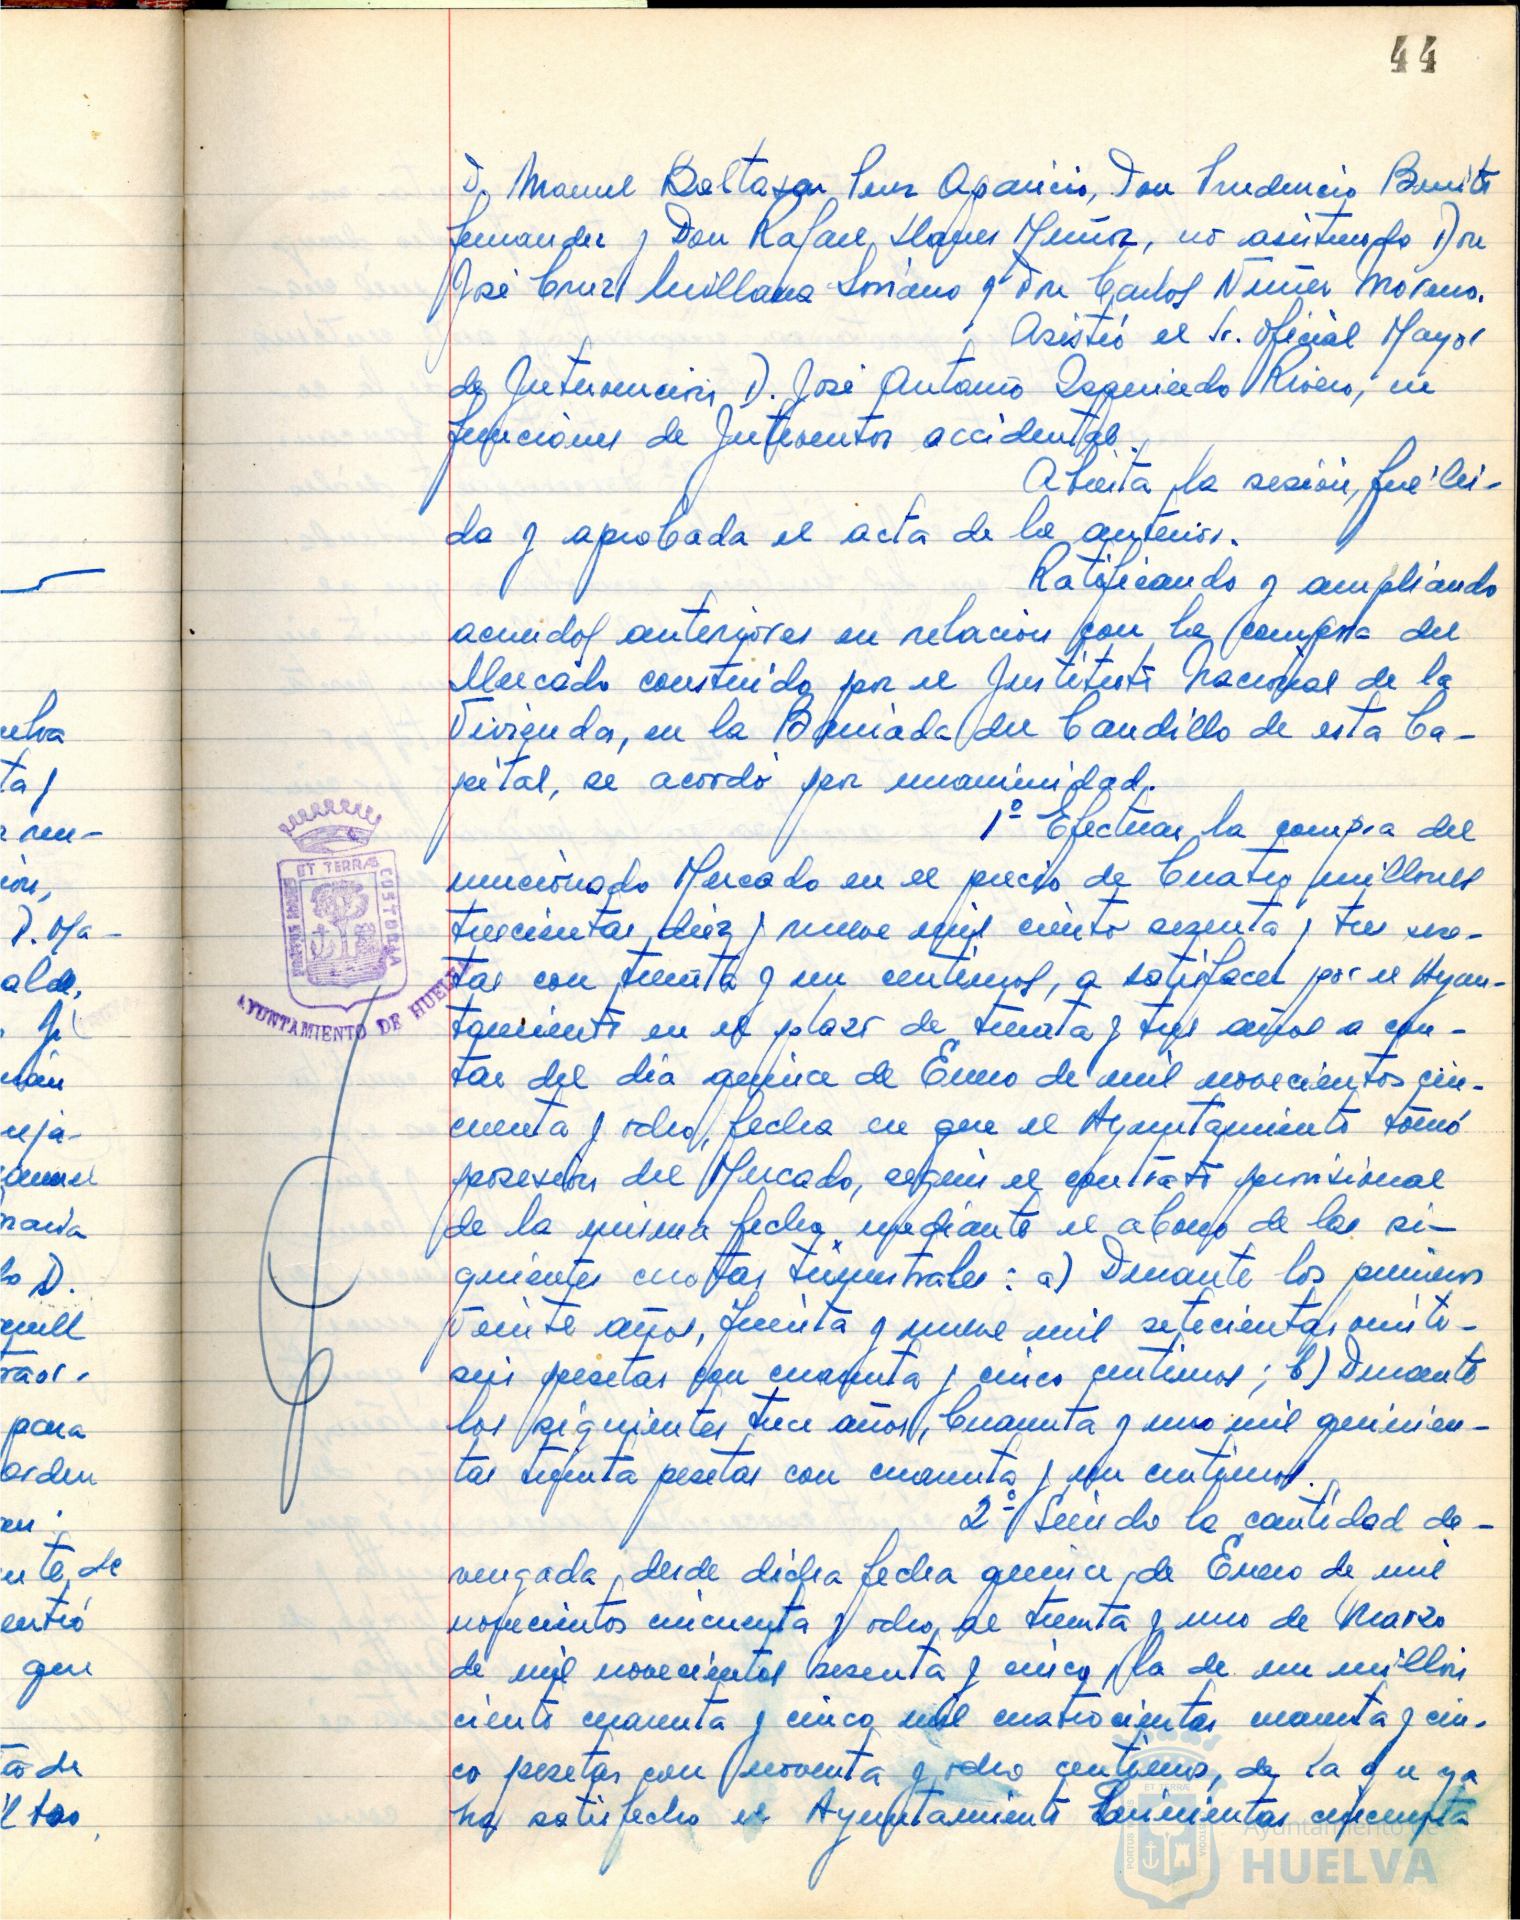 44
D. Manuel Baltasar Pérez Aparicio, Don Prudencio Benito
Fernandez y Don Rafael Llanes Muñoz, no asistiendo Don
José Cruz Quillana Soriano y Don Carlos Nuñez Moreno.
Asistió el Sr. Oficial Mayor
de Intervencion D. José Antonio Izquierdo Rivero, en
funciones de Interventor accidental.
Abierta la sesión, fue lei-
da y aprobada el acta de la anterior.
Ratificando y ampliando
acuerdos anteriores en relacion con la compra del
Mercado construido por el Instituto Nacional de la
Vivienda, en la Barriada del Caudillo de esta Ca-
pital, se acordó por unanimidad.
1º Efectuar la compra del
mencionado Mercado en el precio de Cuatro millones
trescientas diez y nueve mil ciento sesenta y tres pese-
tas con treinta y un centimos, a satisfacer por el Ayun-
tamiento en el plazo de treinta y tres años a con-
tar del dia quince de Enero de mil novecientos cin-
cuenta y ocho, fecha en que el Ayuntamiento tomó
posesión del Mercado, según el contrato provisional
de la misma fecha, mediante el abono de las si-
guientes cuotas trimestrales: a) Durante los primeros
veinte años, treinta y nueve mil setecientas veinti-
seis pesetas con cuarenta y cinco centimos; b) Durante
los siguientes trece años, Cuarenta y una mil quinien-
tas treinta pesetas con cuarenta y un centimos.
2º Siendo la cantidad de-
vengada, desde dicha fecha quince de Enero de mil
novecientos cincuenta y ocho, al treinta y uno de Marzo
de mil novecientos sesenta y cinco, la de un millón
ciento cuarenta y cinco mil cuatrocientas cuarenta y cin-
co pesetas con noventa y ocho centimos, de la que ya
ha satisfecho el Ayuntamiento Quinientas cincuenta
PORTUS MARIS
ET TERRAE
CUSTODIA
AYUNTAMIENTO DE HUELVA
elva
tas
ión,
D. Ma-
alde,
uja-
naria
D.
para
orden
nte de
que
de
Ayuntamiento de
HUELVA